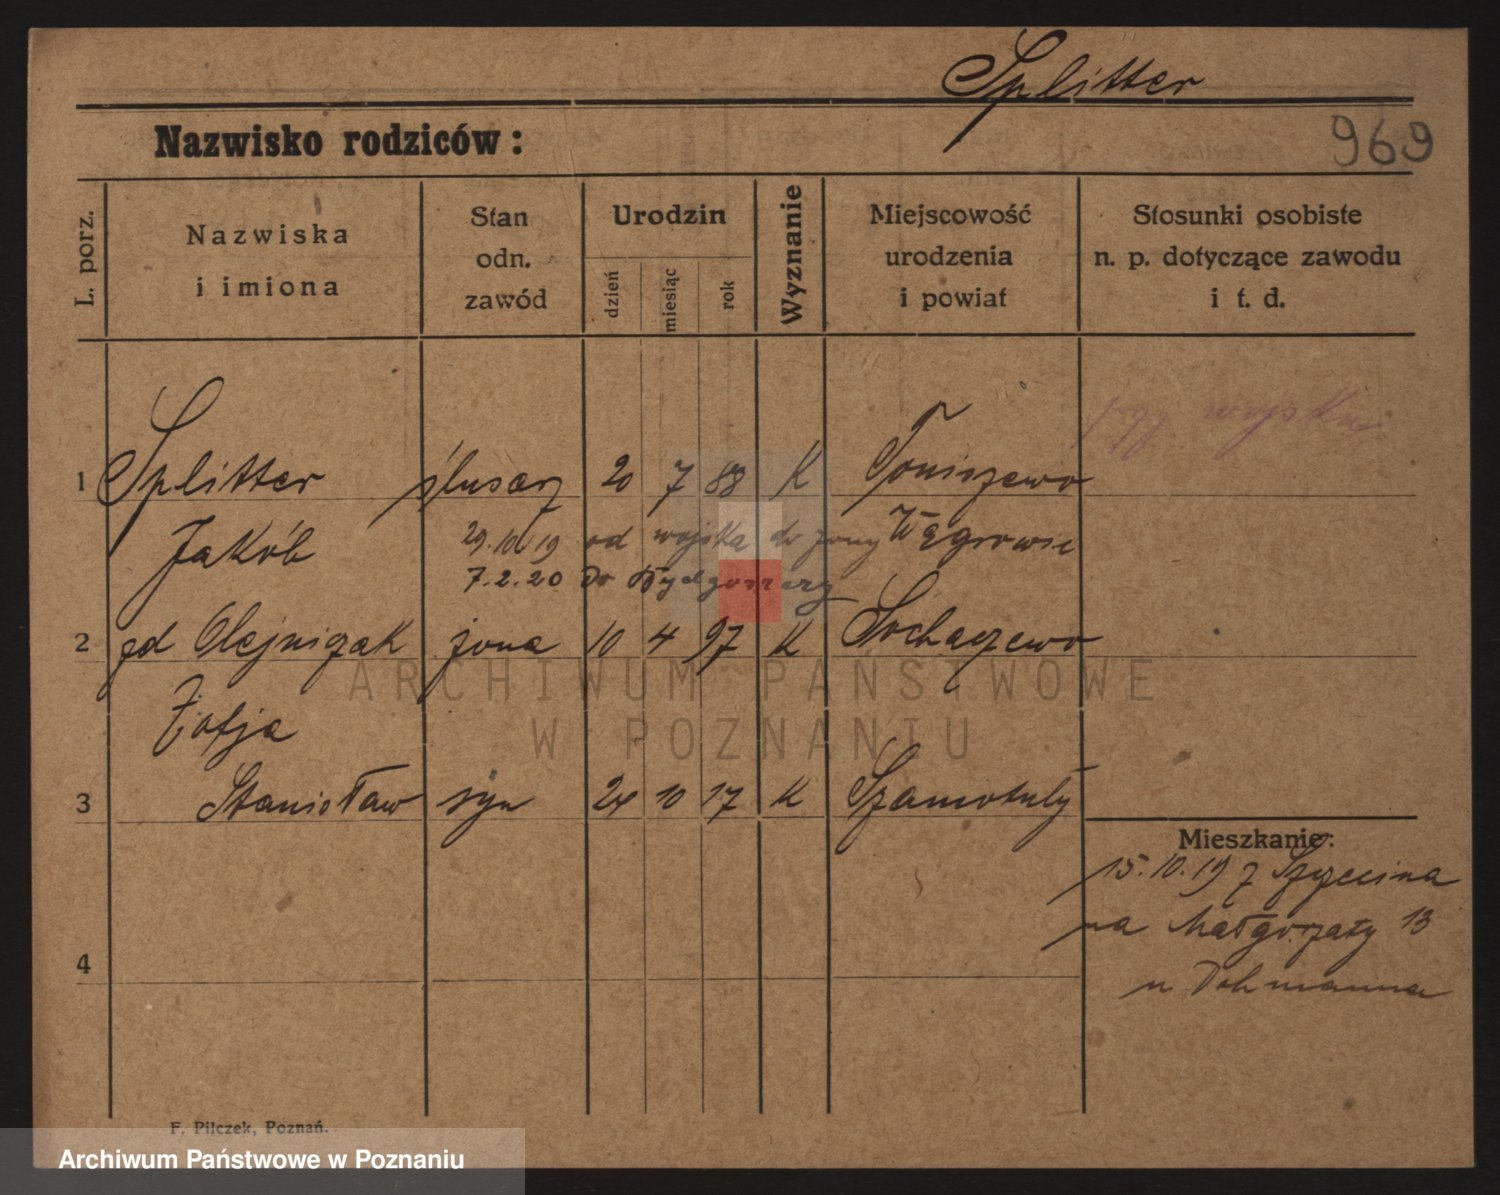 Splitter
Nazwisko rodziców:
969
L. porz.
Nazwiska
i imiona
Stan
odn.
zawód
Urodzin
dzień
miesiąc
rok
Wyznanie
Miejscowość
urodzenia
i powiat
Stosunki osobiste
n. p. dotyczące zawodu
i t. d.
wojsku
1 Splitter ślusarz 20 7 88 K Toniszewo
Jakób 29.10 19 od wojska do żony Wągrowiec
7.2.20 Do Bydgoszczy
2 zd Olejniczak żona 10 4 97 K Sochaczewo
Zofja
3 Stanisław syn 24 10 17 K Szamotuły
Mieszkanie:
15.10.19 z Szczecina
na Małgorzaty 13
u Dohmanna
4
F. Pilczek, Poznań.
ARCHIWUM PAŃSTWOWE
W POZNANIU
Archiwum Państwowe w Poznaniu